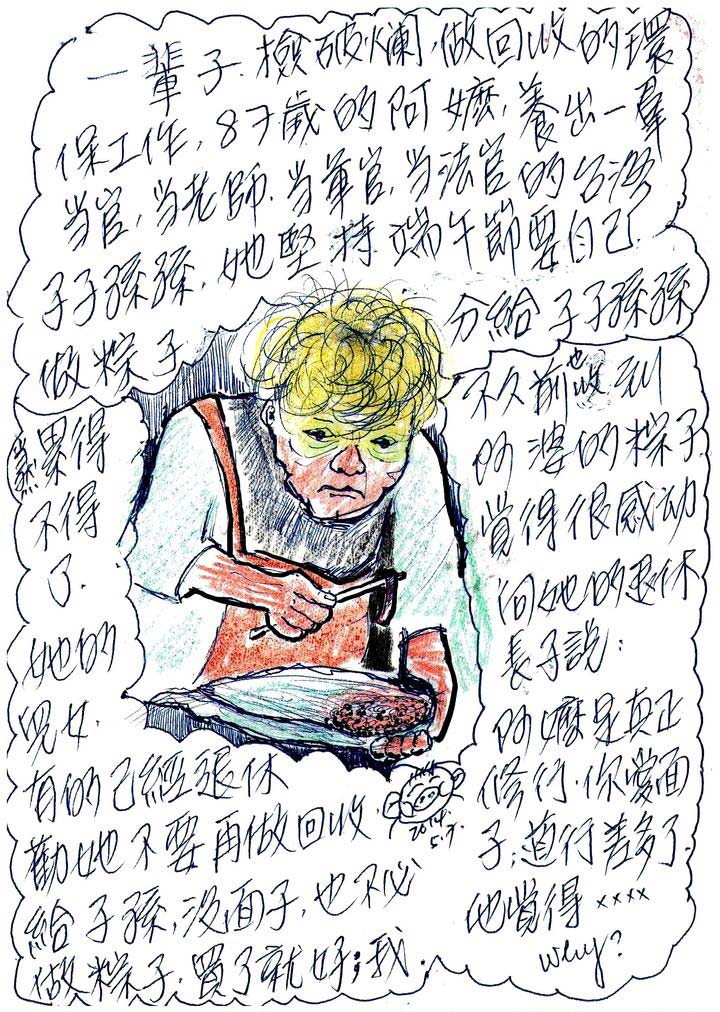 一輩子.檢破爛,做回收的環
保工作,87歲的阿嬤,養出一羣
当官,当老師.当軍官,当法官的台灣
子子孫孫.她堅持端午節要自己
做粽子
分給子子孫孫
累得
不得
了.
她的
兒女.
有的已經退休
勸她不要再做回收.
給子孫,沒面子,也不必
做粽子,買了就好;我.
不久前也收到
阿婆的粽子
覺得很感动
向她的退休
長子說:
阿嬤是真正
修行.你愛面
子;道行差多了.
他覺得××××
why?
2014.
5.7.